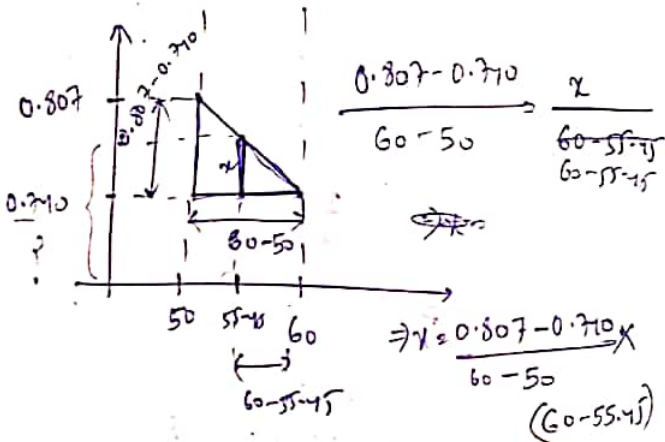 0.807
0.807-0.740
0.740
?
x
60-50
50 55.45 60
60-55.45
0.807-0.740
60-50
x
60-55.45
60-55.45
⇒x = 0.807-0.740 ×
60-50
(60-55.45)